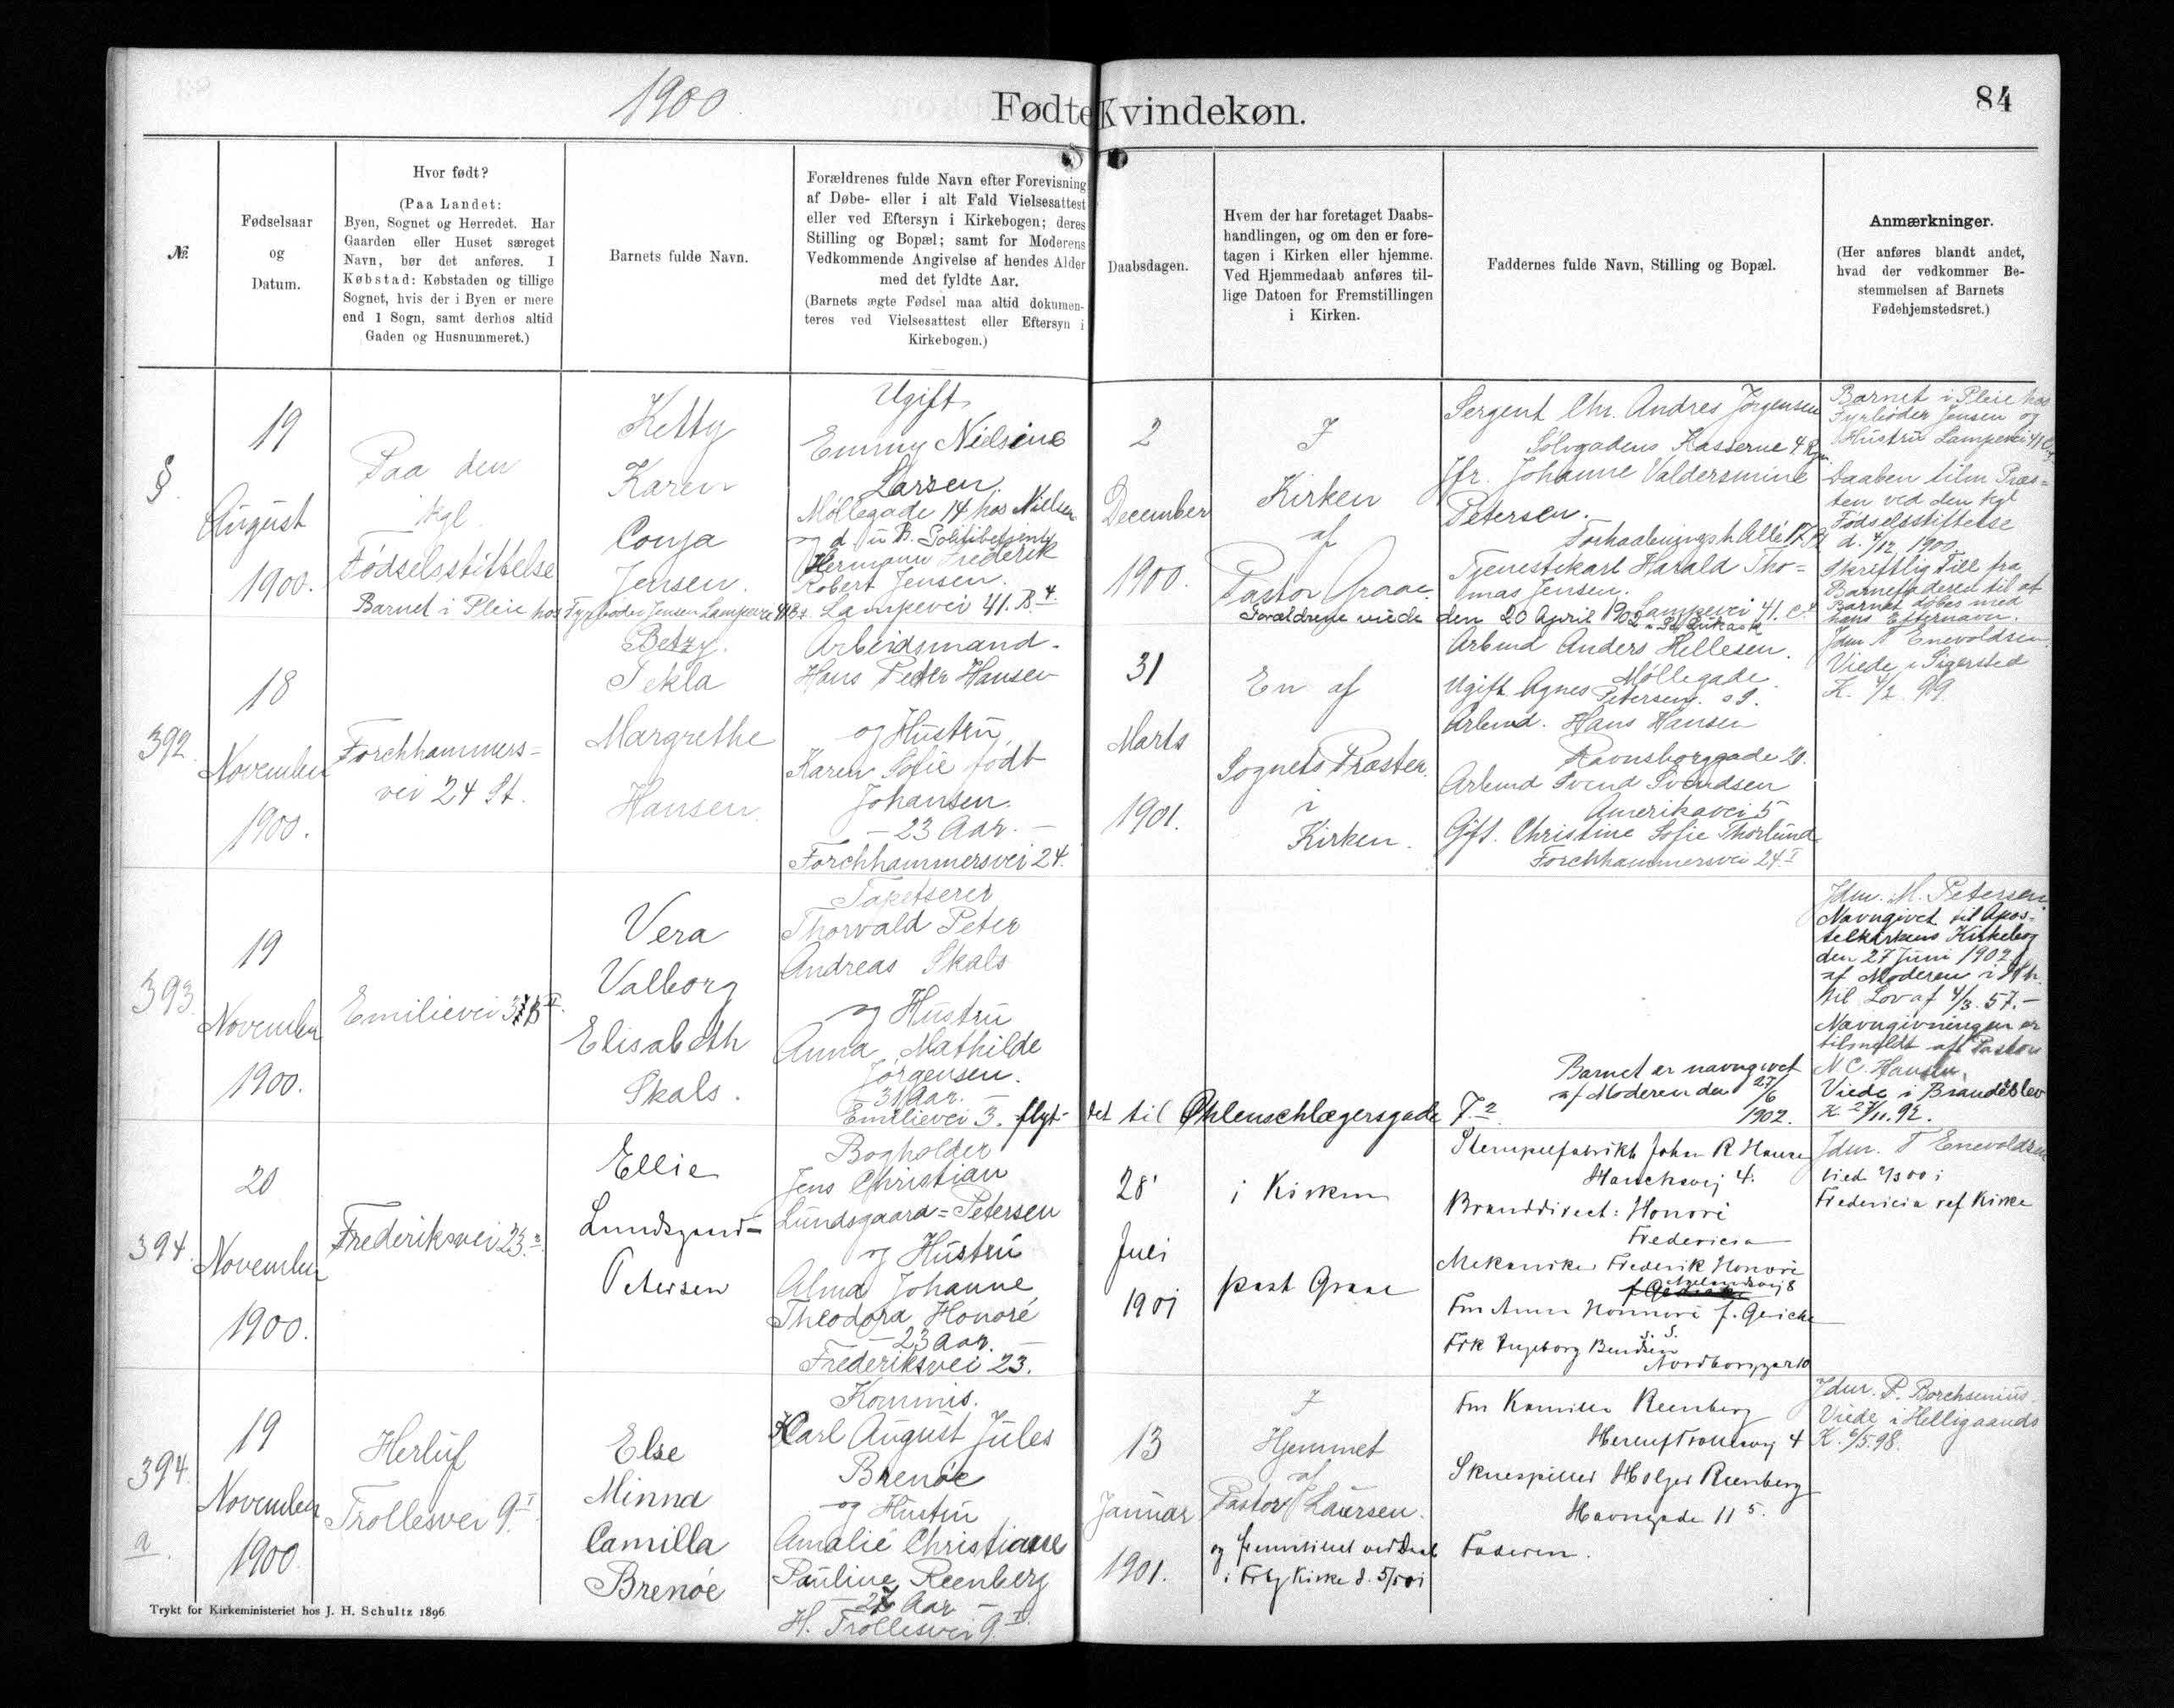 1900
Fødte Kvindekøn.
84
№
Fødselsaar
og
Datum.
Hvor født?
(Paa Landet:
Byen, Sognet og Herredet. Har
Gaarden eller Huset særeget
Navn, bør det anføres. I
Købstad: Købstaden og tillige
Sognet, hvis der i Byen er mere
end 1 Sogn, samt derhos altid
Gaden og Husnummeret.)
Barnets fulde Navn.
Forældrenes fulde Navn efter Forevisning
af Døbe- eller i alt Fald Vielsesattest
eller ved Eftersyn i Kirkebogen; deres
Stilling og Bopæl; samt for Moderens
Vedkommende Angivelse af hendes Alder
med det fyldte Aar.
(Barnets ægte Fødsel maa altid dokumen-
teres ved Vielsesattest eller Eftersyn i
Kirkebogen.)
Daabsdagen.
Hvem der har foretaget Daabs-
handlingen, og om den er fore-
tagen i Kirken eller hjemme.
Ved Hjemmedaab anføres til-
lige Datoen for Fremstillingen
i Kirken.
Faddernes fulde Navn, Stilling og Bopæl.
Anmærkninger.
(Her anføres blandt andet,
hvad der vedkommer Be-
stemmelsen af Barnets
Fødehjemstedsret.)
§.
19
August
1900.
Paa den
kgl.
Fødselsstiftelse
Barnet i Pleie hos Fyrbøder Jensen Lampevei 41 B 4
Ketty
Karen
Conja
Jensen.
Ugift
Emmy Nielsine
Larsen
Møllegade 14 hos Nielsen
og d. u. B. Politibetjent
Hermann Frederik
Robert Jensen.
Lampevei 41. B. 4
2
December
1900.
I
Kirken
af
Pastor Graae.
Forældrene viede den 20 April 1902
Sergent Chr. Andres Jørgensen
Sølvgadens Kasserne
Jfr. Johanne Valdersmine
Petersen.
Forhaabningsh Allé 17
Tjenestekarl Harald Tho=
mas Jensen.
Lampevei 41.
Barnet i Pleie hos
Fyrbøder Jensen og
Hustru Lampevei 41
Daaben tilm Præs=
ten ved den kgl
Fødselsstiftelse
d. 4/12 1900.
Skriftlig Till fra
Barnefaderen til at
Barnet døbes med
hans Efternavn.
392.
18
November
1900.
Forchhammers-
vei 24 St.
Betzy.
Tekla
Margrethe
Hansen.
Arbeidsmand.
Hans Peter Hansen
og Hustru
Karen Sofie født
Johansen.
- 23 Aar. -
Forchhammersvei 24.
31
Marts
1901.
En af
Sognets Præster.
i
Kirken.
Arbmd Anders Hellesen.
Møllegade.
Ugift Agnes Petersen.
Arbmd. Hans Hansen
Ravnsborggade 20.
Arbmd Svend Svendsen
Amerikavei 5
Gift. Christine Sofie Thorlund
Forchhammersvei 24. I
Jdm T Enevoldsen
Viede i Sigersted
K. 4/2 99.
393.
19
November
1900.
Emilievei
Vera
Valborg
Elisabeth
Skals.
Tapetserer
Thorvald Peter
Andreas Skals
og Hustru
Anna Mathilde
Jørgensen.
- 31 Aar. -
Emilievei 3. flyt- tet til Øhlenschlægersgade 7. 2
Barnet er navngivet
af Moderen den 27/6
1902.
Jdm. M. Petersen
Navngivet til Apos-
telkirkens Kirkebog
den 27 Juni 1902
af Moderen i Flh.
til Lov af 4/3. 57.-
Navngivningen er
tilmeldt af Pastor
N C. Hansen.
Viede i Brandeslev
K. 27/11. 92.
394.
20
November
1900.
Frederiksvei 23. 2
Ellie
Lundsgaard-
Petersen
Bogholder
Jens Christian
Lundsgaard=Petersen
og Hustru
Alma Johanne
Theodora Honoré
- 23 Aar. -
Frederiksvei 23.
28'
Juli
1901
i Kirken
past Graae
Stempelfabrikt John R Hansen
Hauchsvej 4.
Branddirect: Honoré
Fredericia
Mekaniker Frederik Honoré
Fru Anna Honoré f. Gericke
Frk Ingeborg Bendsen
Jdm. T Enevoldsen
i
Fredericia ref Kirke
394.
a.
19
November
1900.
Herluf
Trollesvei 9. I
Else
Minna
Camilla
Brenöe
Kommis.
Karl August Jules
Brenöe
og Hustru
Amalie Christiane
Pauline Reenberg
- 27 Aar -
H. Trollesvei 9. I
13
Januar
1901.
I
Hjemmet
af
Pastor J Laursen.
og fremstillet
i Frbg Kirke d. 5/5 01
Fru Kamilla Reenberg
Herluf Trollesvej 4
Skuespiller Holger Reenberg
Havnegade 11 5.
Faderen.
Jdm. P. Borchsenius.
Viede i Helligaands
K. 6/5. 98.
Trykt for Kirkeministeriet hos J. H. Schultz 1896.